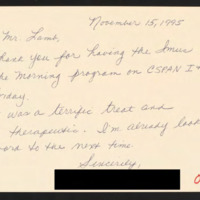 November 15, 1995
Mr. Lamb,
thank you for having the Imus
the Morning program on CSPAN I
day.
was a terrific treat and
therapeutic. I'm already look
ward to the next time.
Sincerely,